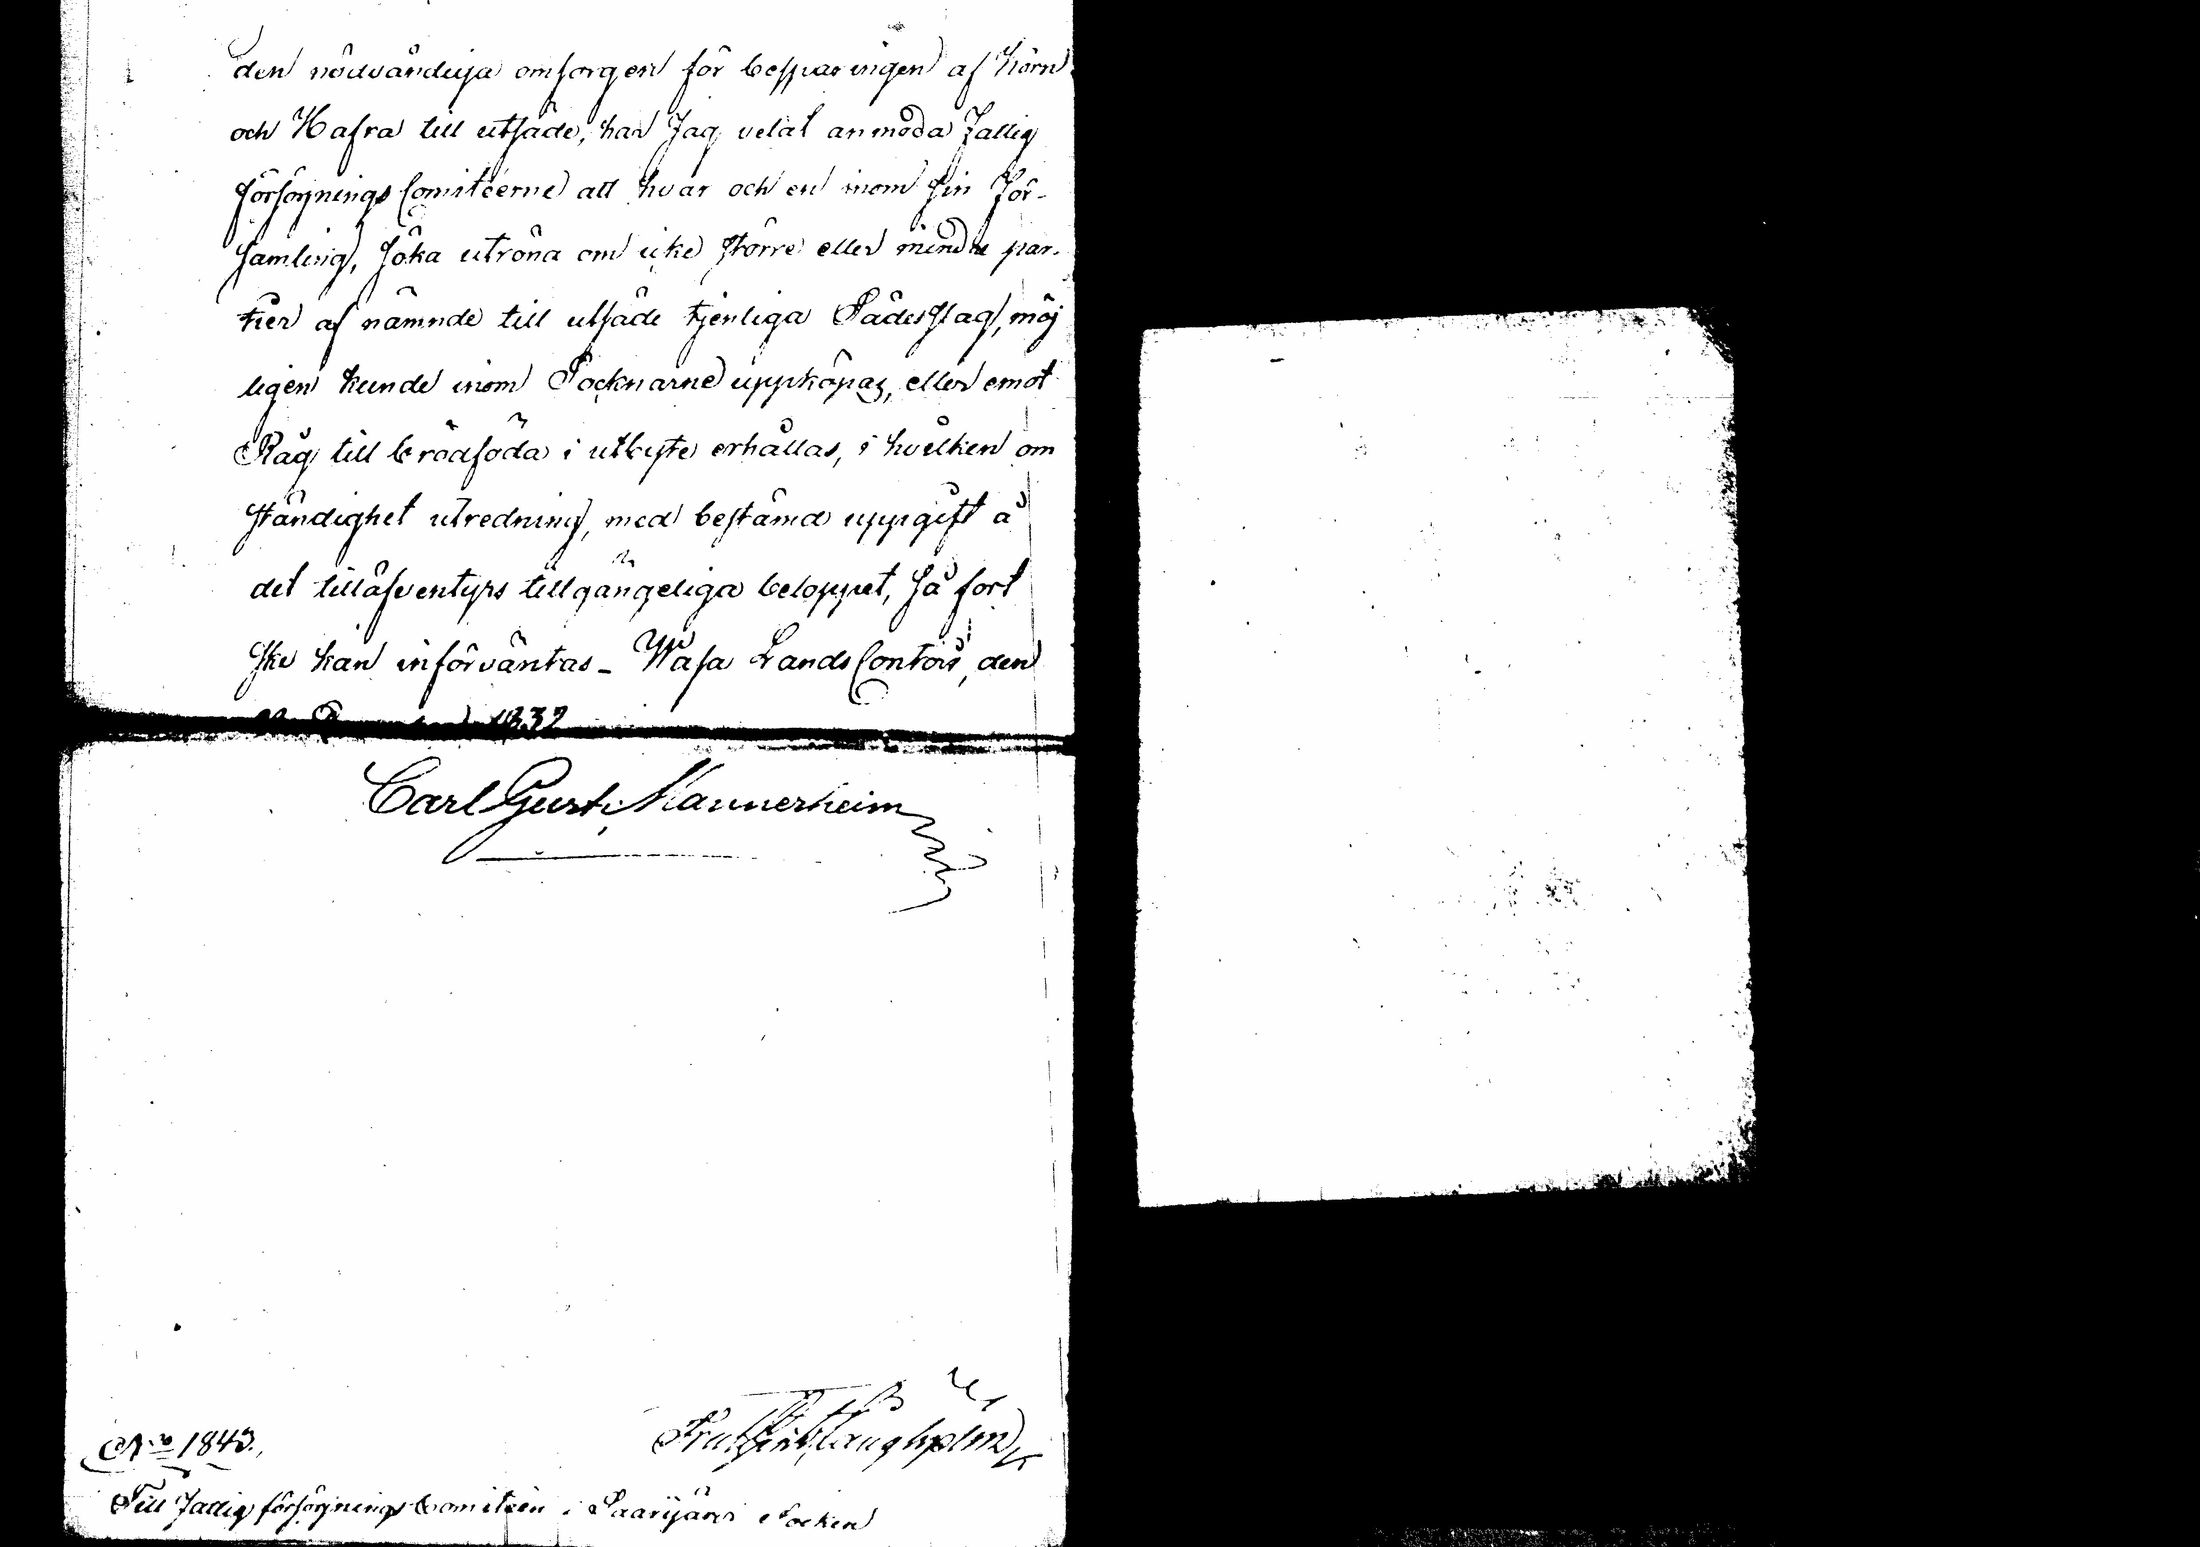 den nödvändiga omsorgen för besparingen af Korn
och Hafra till utsäde, har Jag velat anmoda Fattig
försörjnings Comitéerne att hvar och en inom sin För-
samling, söka utröna om icke större eller mindre par-
tier af nämnde till utsäde tjenliga Sädesslag, möj
ligen kunde inom Socknarne uppköpas, eller emot
Råg till brödföda i utbyte erhållas, i hvilken om
ständighet utredning, med bestämd uppgift å
det tilläfventyrs tillgängeliga beloppet, så fort
ske kan införväntas - Wasa Lands Contoir, den
1832
Carl Gust. Mannerheim
No 1843.
Till Fattig försörjnings Comitéen i Saarijärvi Socken